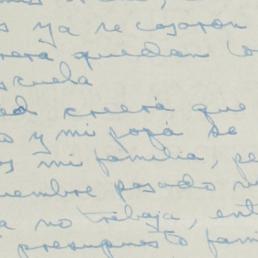 s ya se casaron
quedan lo
scuela
ed creerá que
o y mi papá se
os mi familia, pe
uembre pasado m
a no trabaja, ent
presupuesto fam